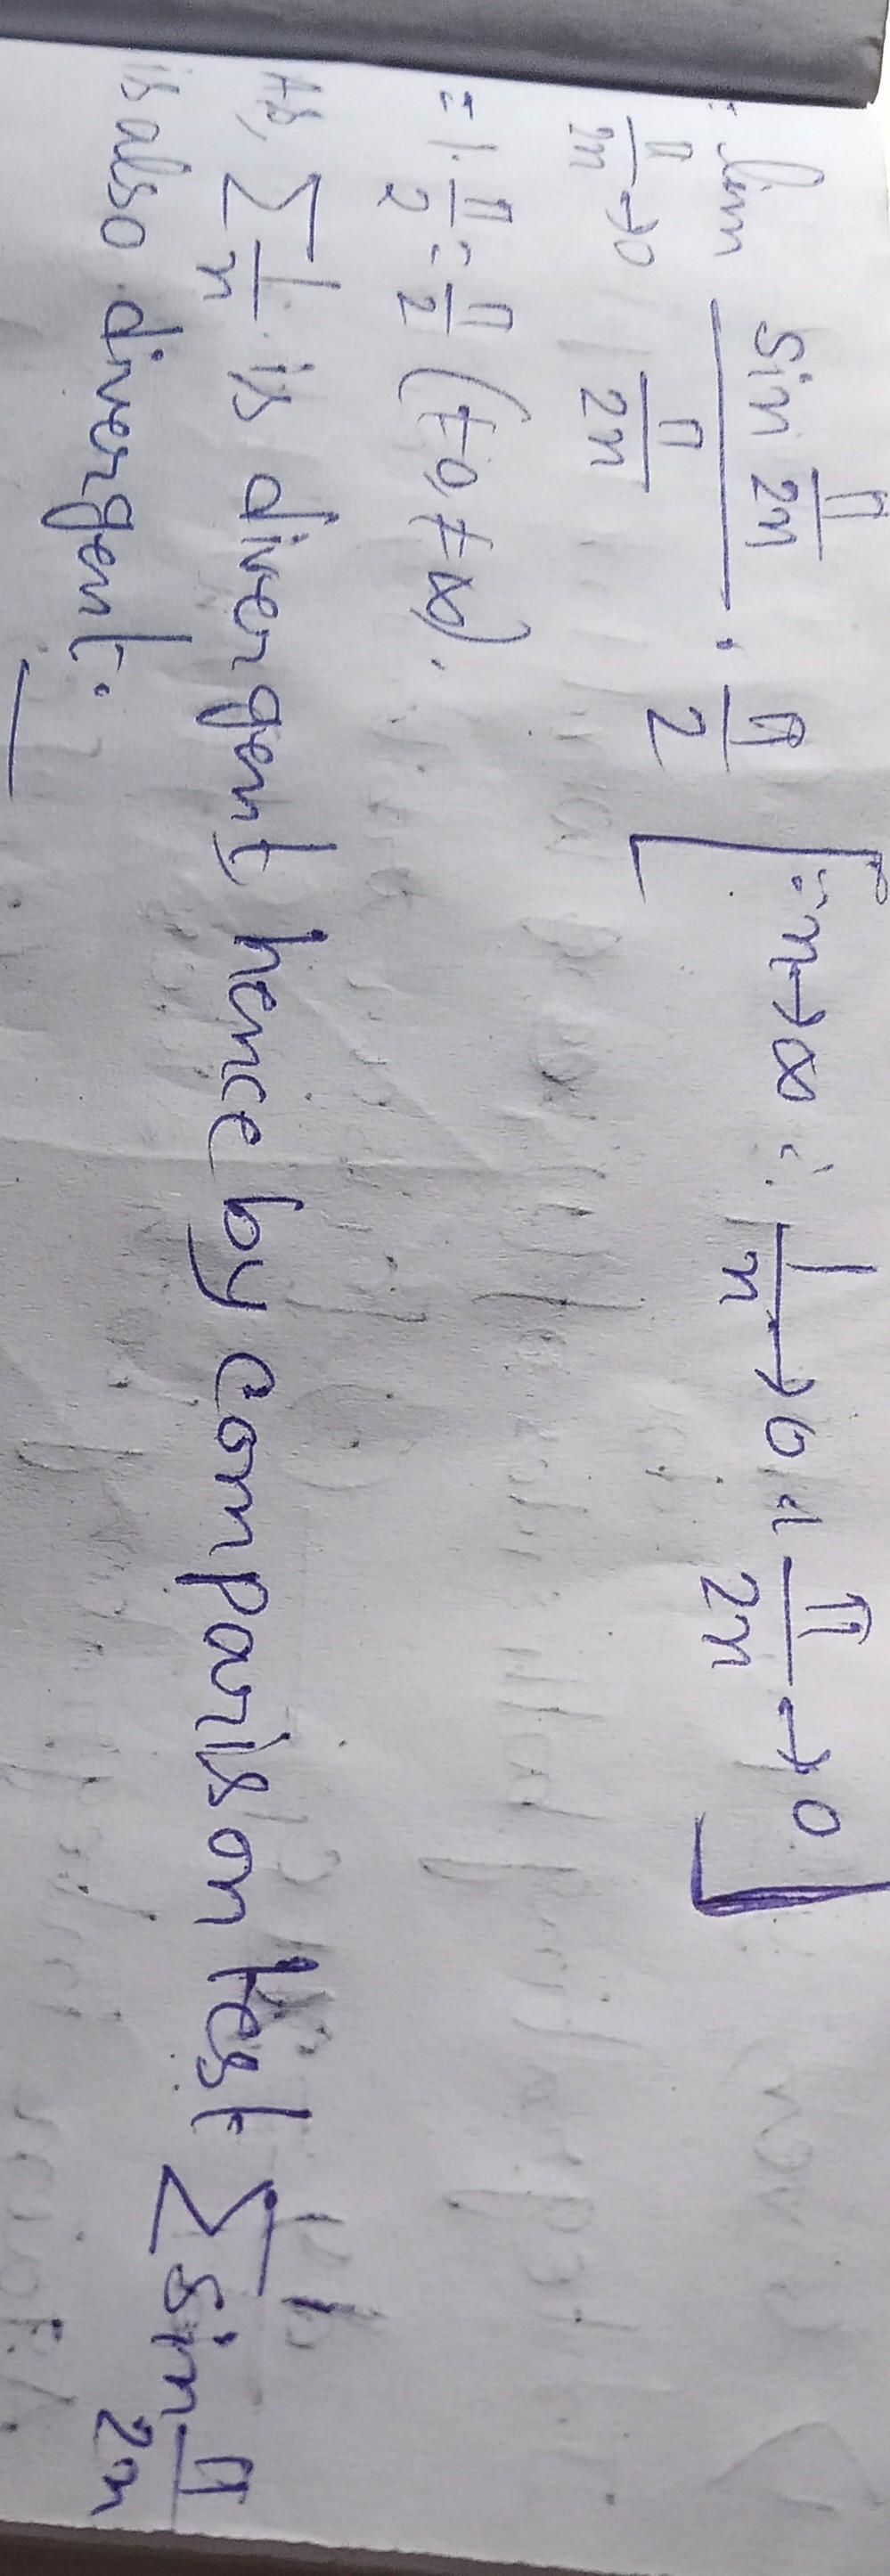 = lim π/2n→0 (sin π/2n)/(π/2n) · π/2 [∵ n→∞ ∴ 1/n→0 ∴ π/2n→0]
= 1·π/2 = π/2 (≠0, ≠∞).
As, ∑ 1/n is divergent hence by comparison test ∑ sin π/2n
is also divergent.